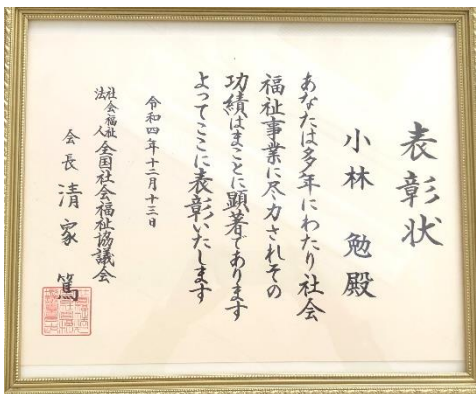 表彰状
小林 勉 殿
あなたは多年にわたり社会
福祉事業に尽力されその
功績はまことに顕著であります
よってここに表彰いたします
令和四年十二月十三日
社会福祉法人 全国社会福祉協議会
会長 清家 篤